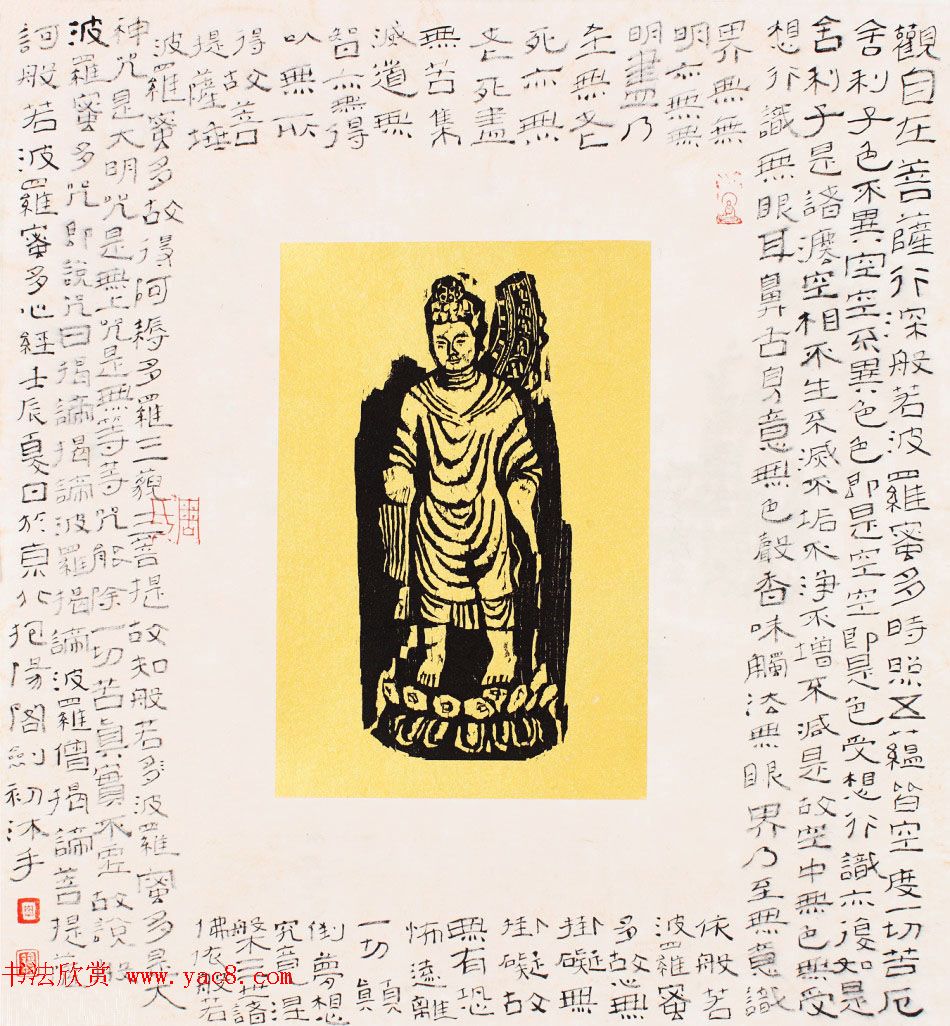 觀自在菩薩行深般若波羅蜜多時照五蘊皆空度一切苦厄
舍利子色不異空空不異色色即是空空即是色受想行識亦復如是
舍利子是諸法空相不生不滅不垢不淨不增不減是故空中無色無受
想行識無眼耳鼻舌身意無色聲香味觸法無眼界乃至無意識
界無無
明亦無無
明盡乃
至無老
死亦無
老死盡
無苦集
滅道無
智亦無得
以無所
得故菩
提薩埵
依般若
波羅蜜
多故心無
掛礙無
掛礙故
無有恐
怖遠離
一切顛
倒夢想
究竟涅
槃三世諸
佛依般若
波羅蜜多故得阿耨多羅三藐三菩提故知般若多波羅蜜多是大
神咒是大明咒是無上咒是無等等咒能除一切苦真實不虛故說般
波羅蜜多咒即說咒曰揭諦揭諦波羅揭諦波羅僧揭諦菩提
訶般若波羅蜜多心經壬辰夏日於京北抱陽閣劍初沐手
书法欣赏 www.yac8.com